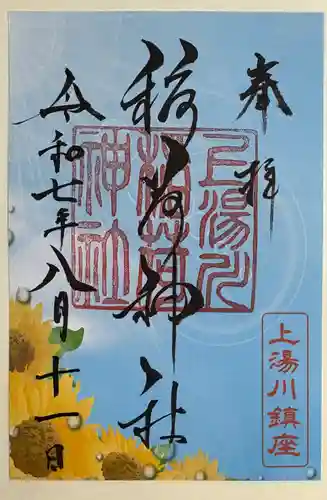 奉拝
稲荷神社
令和七年八月十一日
上湯川
稲荷
神社
上湯川鎮座